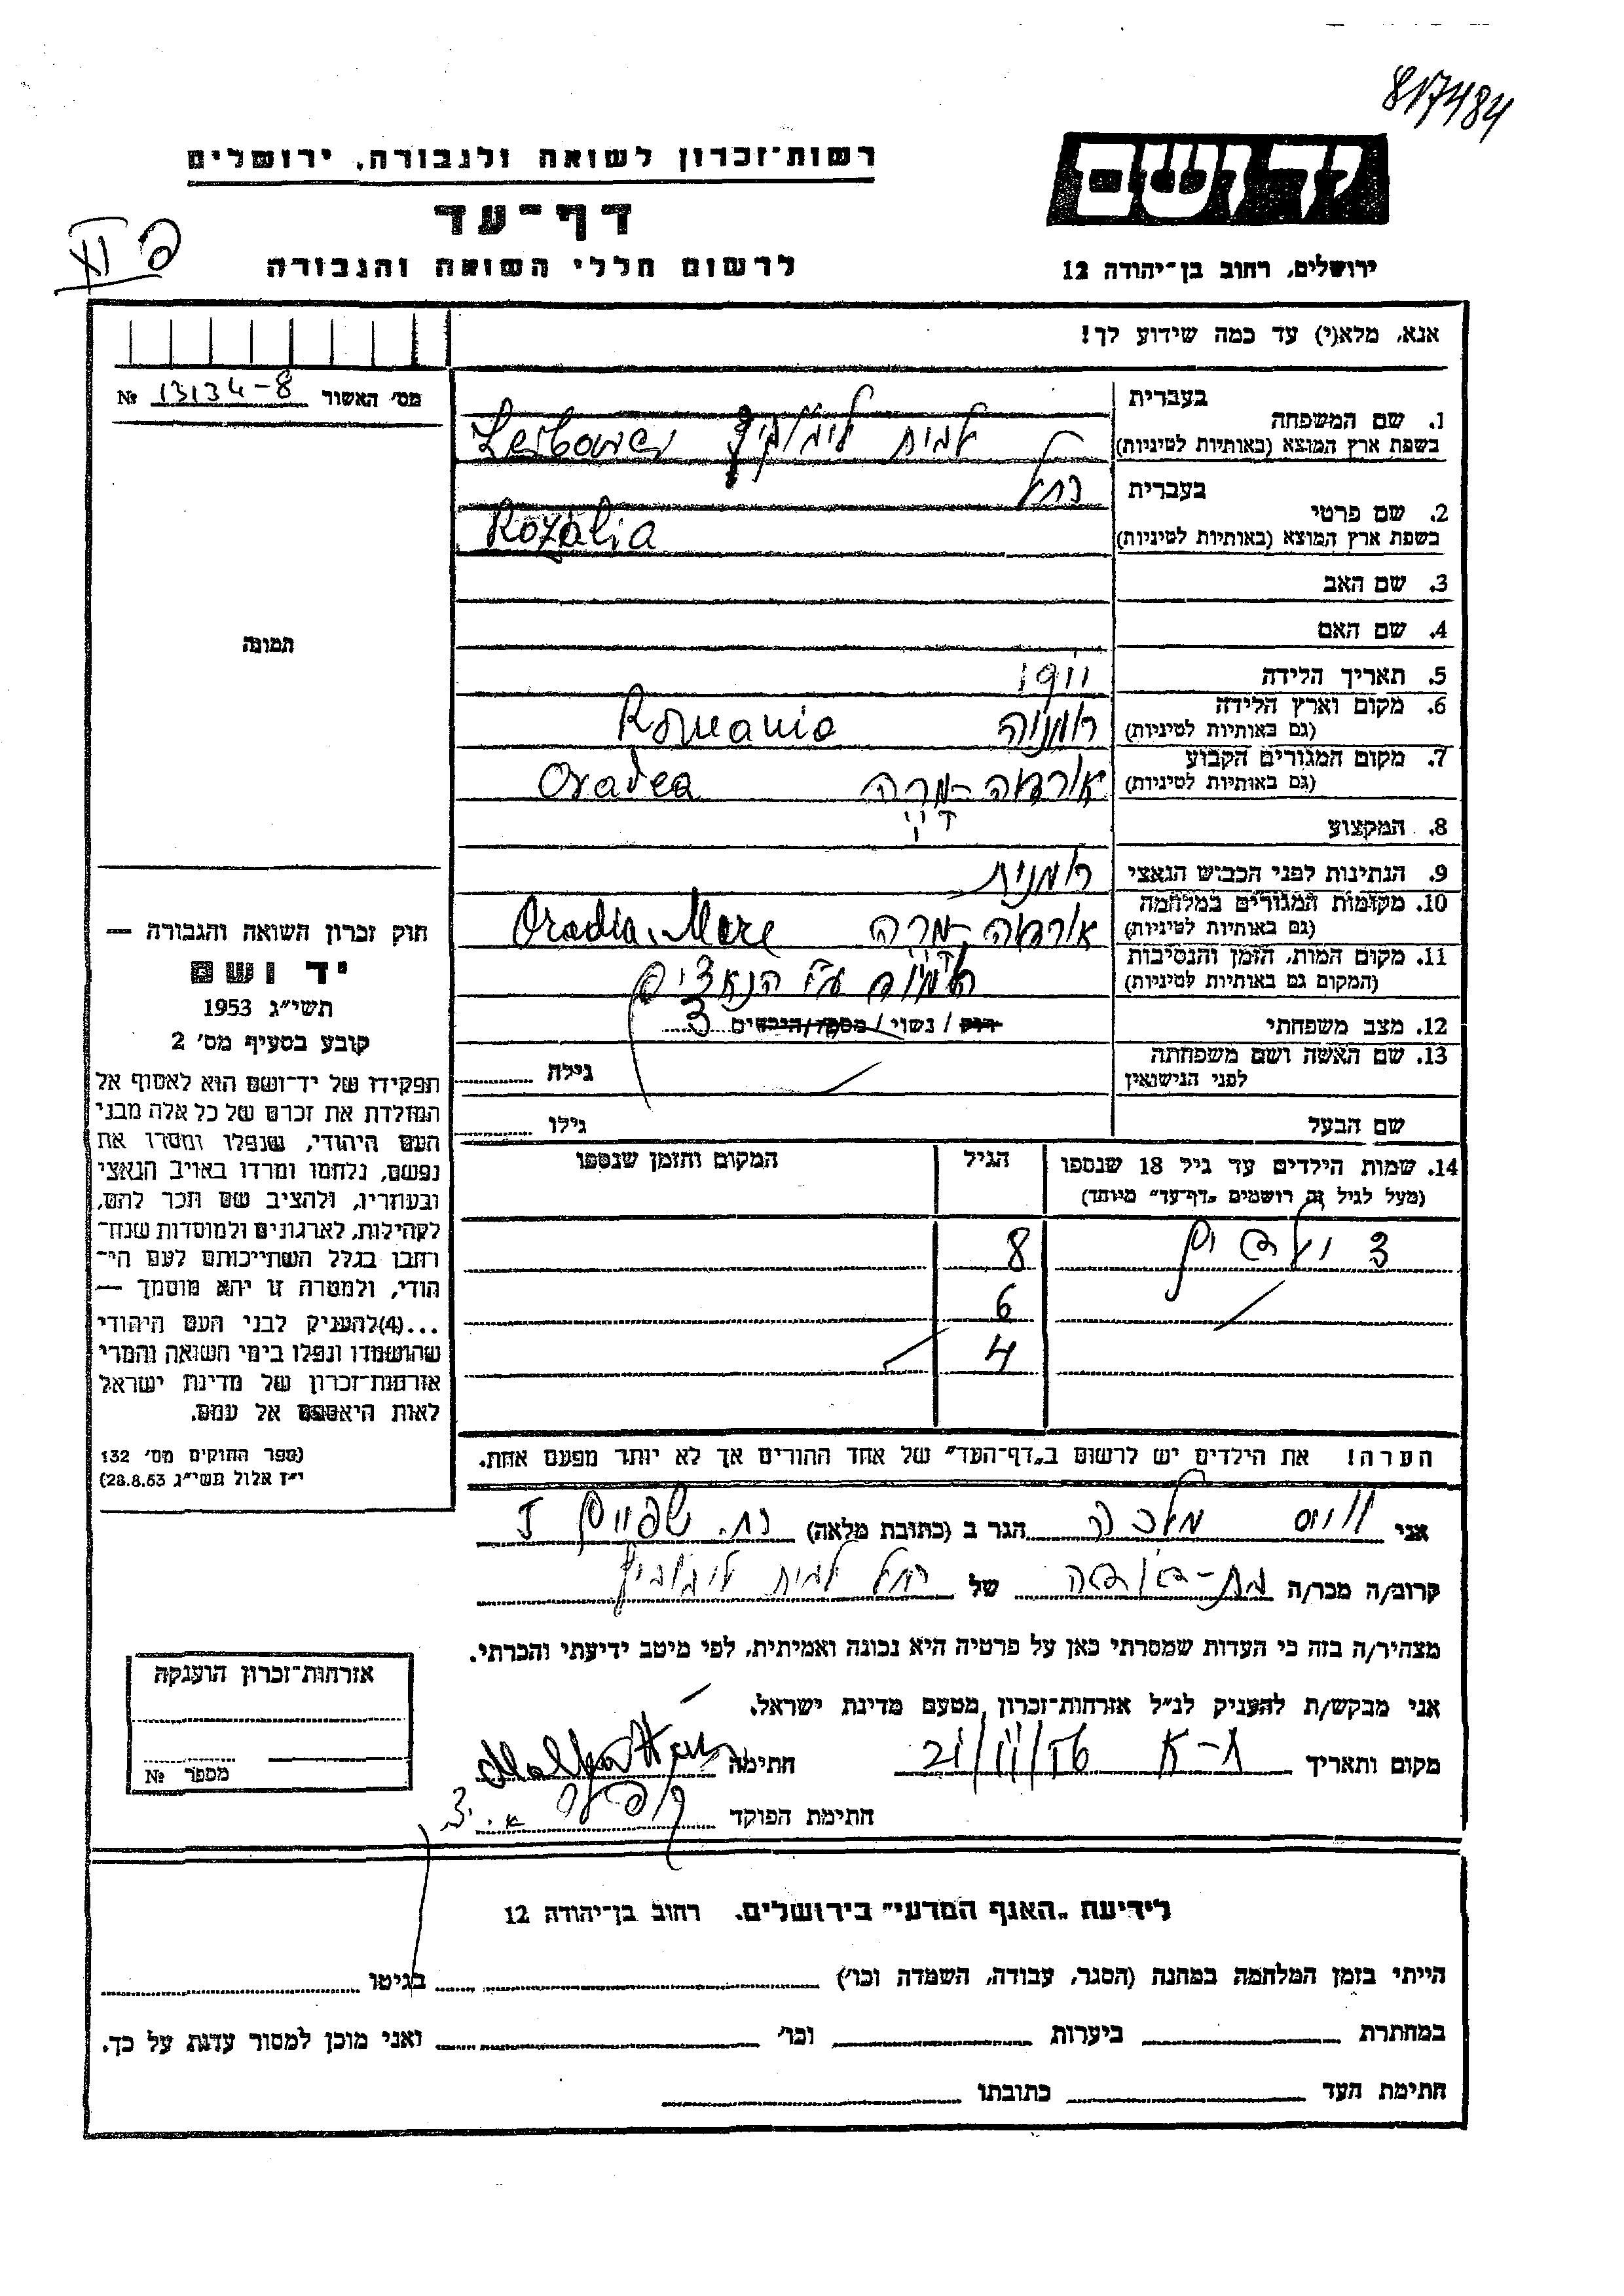 817484
יד ושם
רשות־זכרון לשואה ולגבורה, ירושלים
דף־עד
לרשום חללי השואה והגבורה
ירושלים, רחוב בן־יהודה 12
אנא, מלא(י) עד כמה שידוע לך!
מס׳ האשור 13134-8 №
1. שם המשפחה
בעברית
לבית ליבוביץ
בשפת ארץ המוצא (באותיות לטיניות) Leibovici
2. שם פרטי
בעברית רחל
בשפת ארץ המוצא (באותיות לטיניות) Rozalia
3. שם האב
4. שם האם
5. תאריך הלידה 1911
6. מקום וארץ הלידה
(גם באותיות לטיניות) רומניה Romania
7. מקום המגורים הקבוע
(גם באותיות לטיניות) אורדיה-מרה Oradea
8. המקצוע
9. הנתינות לפני הכבוש הנאצי רומנית
10. מקומות המגורים במלחמה
(גם באותיות לטיניות) אורדיה-מרה Oradia-Mare
11. מקום המות, הזמן והנסיבות
(המקום גם באותיות לטיניות) ע״י הנאצים
12. מצב משפחתי רווק / נשוי / מספר הילדים 3
13. שם האשה ושם משפחתה
לפני הנישואין
גילה
שם הבעל
גילו
14. שמות הילדים עד גיל 18 שנספו
(מעל לגיל זה רושמים „דף־עד״ מיוחד)
הגיל
המקום והזמן שנספו
3 ילדים
8
6
4
הערה! את הילדים יש לרשום ב„דף־העד״ של אחד ההורים אך לא יותר מפעם אחת.
תמונה
חוק זכרון השואה והגבורה —
יד ושם
תשי״ג 1953
קובע בסעיף מס׳ 2
תפקידו של יד־ושם הוא לאסוף אל
המולדת את זכרם של כל אלה מבני
העם היהודי, שנפלו ומסרו את
נפשם, נלחמו ומרדו באויב הנאצי
ובעוזריו, ולהציב שם וזכר להם,
לקהילות, לארגונים ולמוסדות שנח־
רבו בגלל השתייכותם לעם הי־
הודי, ולמטרה זו יהא מוסמך —
...(4)להעניק לבני העם היהודי
שהושמדו ונפלו בימי השואה והמרי
אזרחות־זכרון של מדינת ישראל
לאות היאספם אל עמם.
(ספר החוקים מס׳ 132
י״ז אלול תשי״ג 28.8.53)
אני וויס מלכה הגר ב (כתובת מלאה) רח.
קרוב/ה מכר/ה בת-דודה של רחל לבית ליבוביץ
מצהיר/ה בזה כי העדות שמסרתי כאן על פרטיה היא נכונה ואמיתית, לפי מיטב ידיעתי והכרתי.
אני מבקש/ת להעניק לנ״ל אזרחות־זכרון מטעם מדינת ישראל.
מקום ותאריך ת-א 21/11/56 חתימה
חתימת הפוקד
אזרחות־זכרון הוענקה
מספר №
לידיעת „האגף המדעי״ בירושלים, רחוב בן־יהודה 12
הייתי בזמן המלחמה במחנה (הסגר, עבודה, השמדה וכו׳) בגיטו
במחתרת ביערות וכו׳ ואני מוכן למסור עדות על כך.
חתימת העד כתובתו